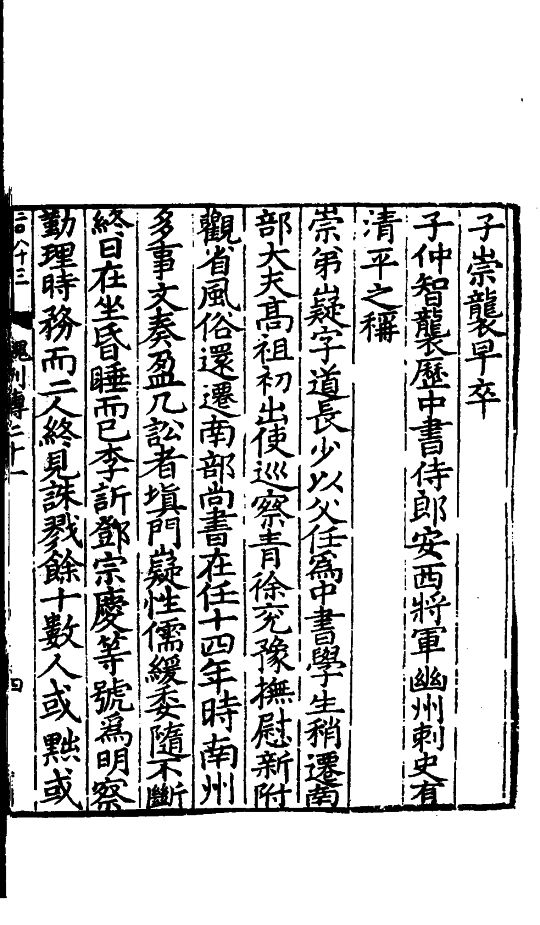 子崇襲早卒
子仲智襲歷中書侍郎安西將軍幽州刺史有
清平之稱
崇弟嶷字道長少以父任爲中書學生稍遷南
部大夫高祖初出使巡察青徐兖豫撫慰新附
觀省風俗還遷南部尚書在任十四年時南州
多事文奏盈几訟者塡門嶷性儒緩委隨不斷
終日在坐昏睡而已李訢鄧宗慶等號爲明察
勤理時務而二人終見誅戮餘十數人或黜或
魏列傳二十一
四